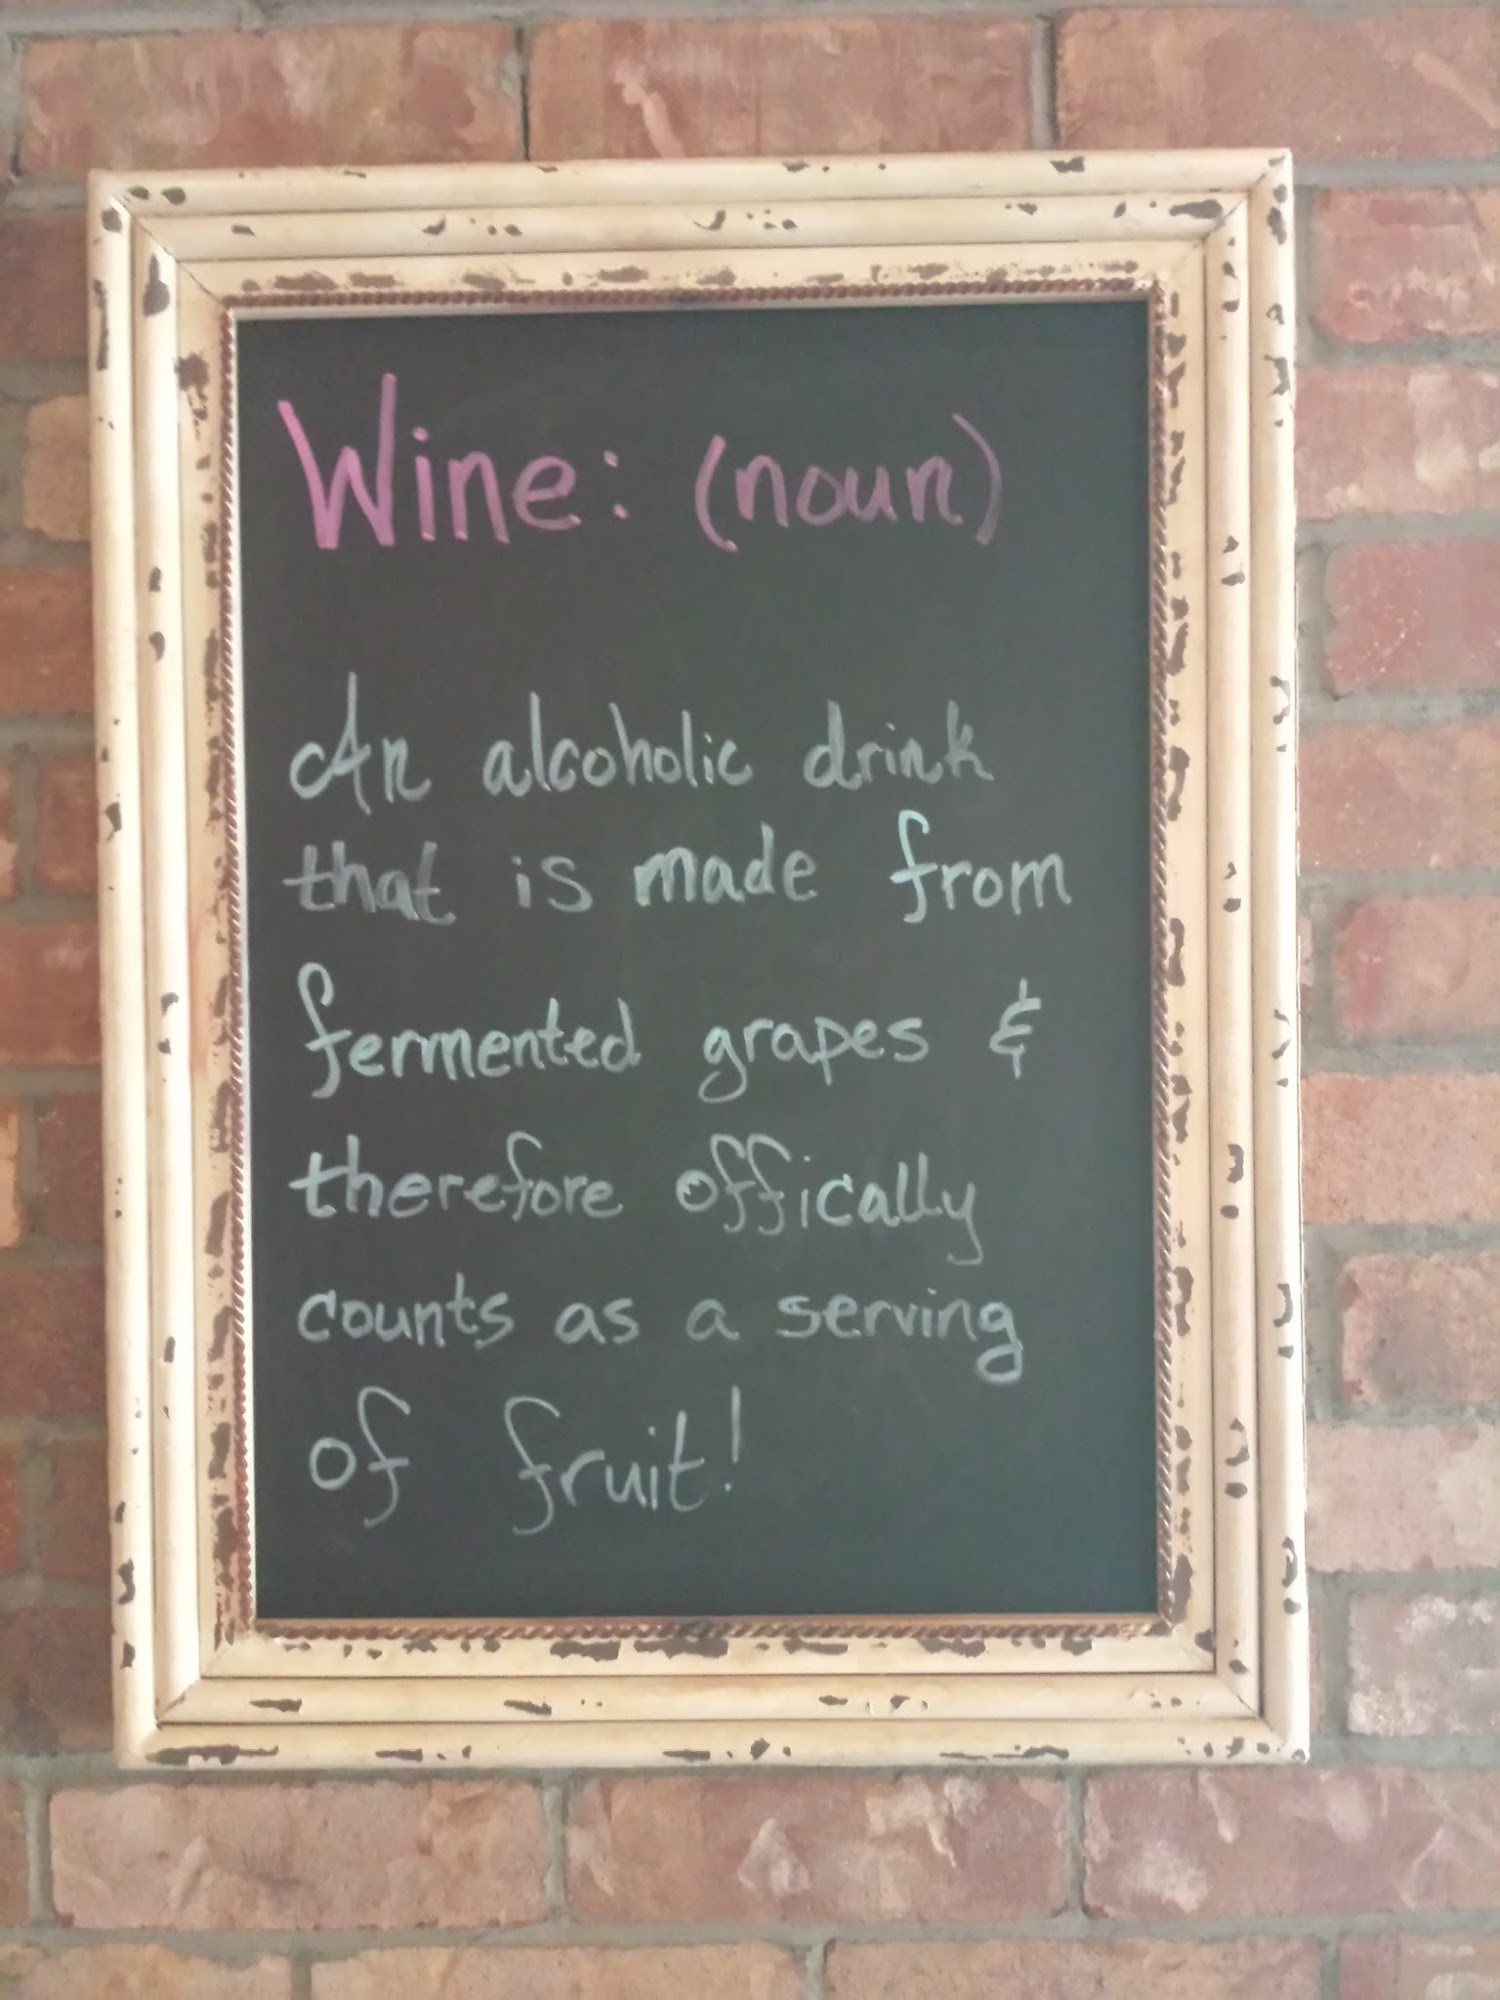 Wine: (noun)
An alcoholic drink
that is made from
fermented grapes &
therefore offically
counts as a serving
of fruit!